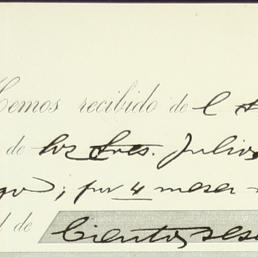 Hemos recibido de l
de los Sres. Julios
; por 4 meses
de
Cientos ses